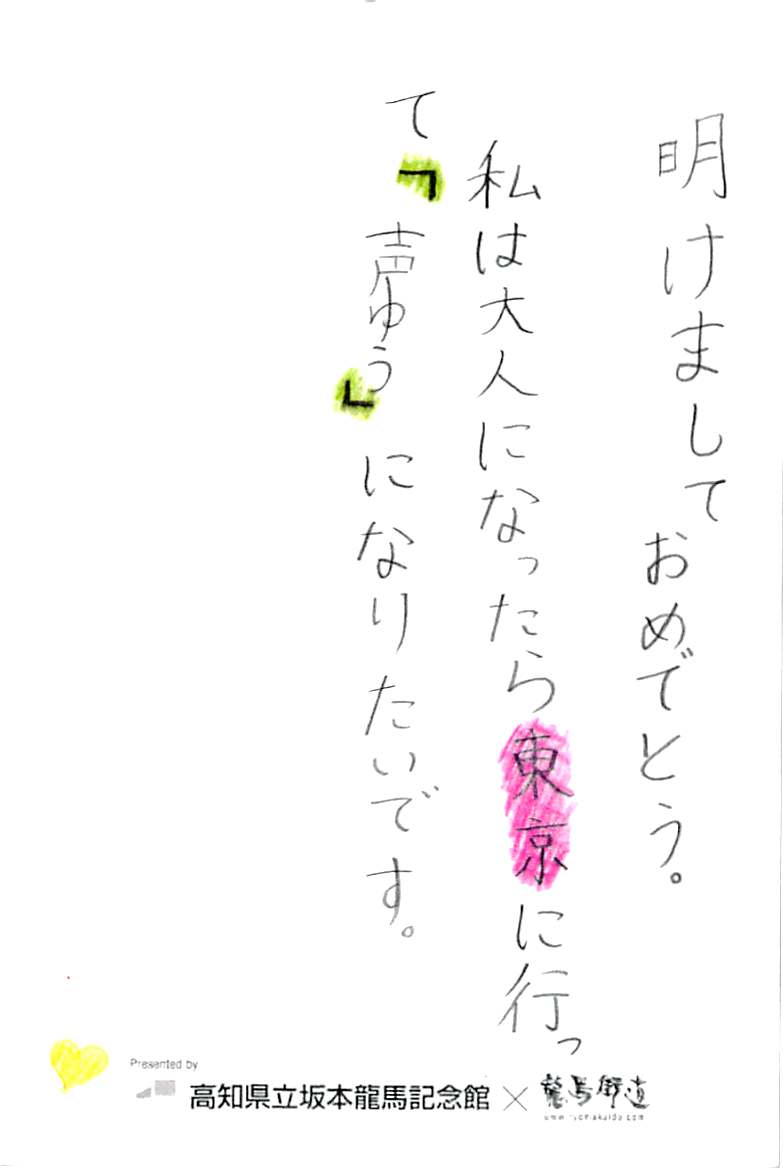 明けましておめでとう。
私は大人になったら東京に行っ
て「声ゆう」になりたいです。
Presented by
高知県立坂本龍馬記念館×龍馬街道
www.ryomakaido.com